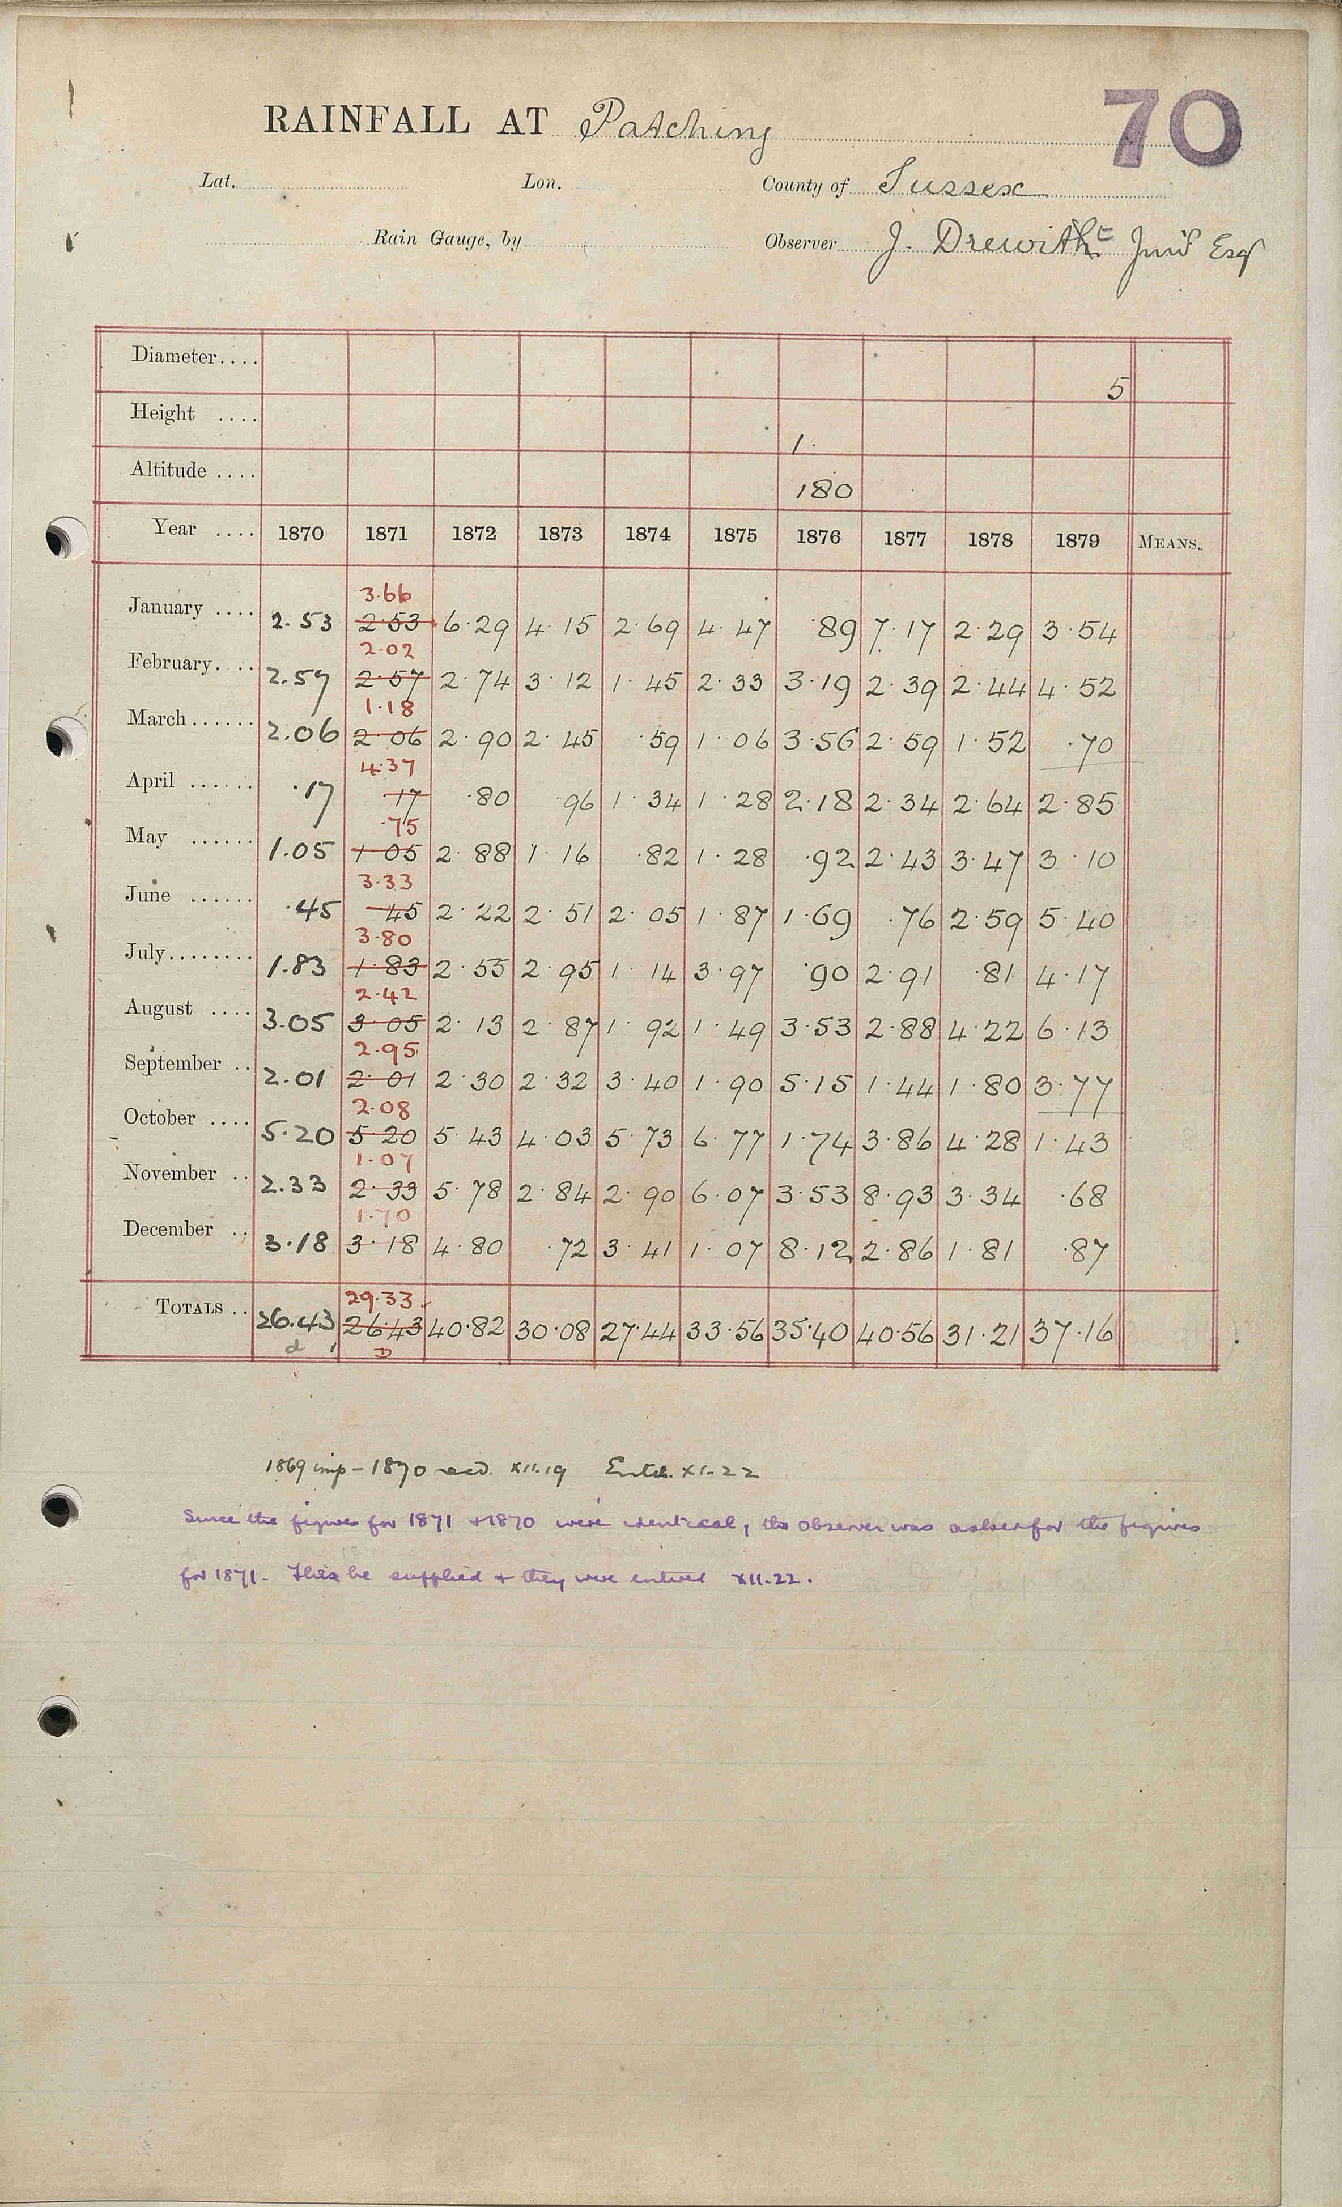 70
RAINFALL AT Patching
Lat. Lon. County of Sussex
Rain Gauge, by Observer J. Drewitt Junr Esq
Diameter.... 5
Height .... 1.
Altitude .... 180
Year .... 1870 1871 1872 1873 1874 1875 1876 1877 1878 1879 MEANS.
3.66
January .... 2.53 2.53 6.29 4.15 2.69 4.47 .89 7.17 2.29 3.54
2.02
February.... 2.57 2.57 2.74 3.12 1.45 2.33 3.19 2.39 2.44 4.52
1.18
March...... 2.06 2.06 2.90 2.45 .59 1.06 3.56 2.59 1.52 .70
4.37
April ...... .17 17 .80 96 1.34 1.28 2.18 2.34 2.64 2.85
.75
May ...... 1.05 1.05 2.88 1.16 .82 1.28 .92 2.43 3.47 3.10
3.33
June ...... .45 45 2.22 2.51 2.05 1.87 1.69 .76 2.59 5.40
3.80
July........ 1.83 1.83 2.55 2.95 1.14 3.97 .90 2.91 .81 4.17
2.42
August .... 3.05 3.05 2.13 2.87 1.92 1.49 3.53 2.88 4.22 6.13
2.95
September .. 2.01 2.01 2.30 2.32 3.40 1.90 5.15 1.44 1.80 3.77
2.08
October .... 5.20 5.20 5.43 4.03 5.73 6.77 1.74 3.86 4.28 1.43
1.07
November .. 2.33 2.33 5.78 2.84 2.90 6.07 3.53 8.93 3.34 .68
1.70
December .. 3.18 3.18 4.80 .72 3.41 1.07 8.12 2.86 1.81 .87
29.33
TOTALS .. 26.43 26.43 40.82 30.08 27.44 33.56 35.40 40.56 31.21 37.16
d D
1869 imp - 1870 recd. XII.19 Entd. XI.22
Since the figures for 1871 & 1870 were identical, the observer was asked for the figures
for 1871. This he supplied & they were entered XII.22.